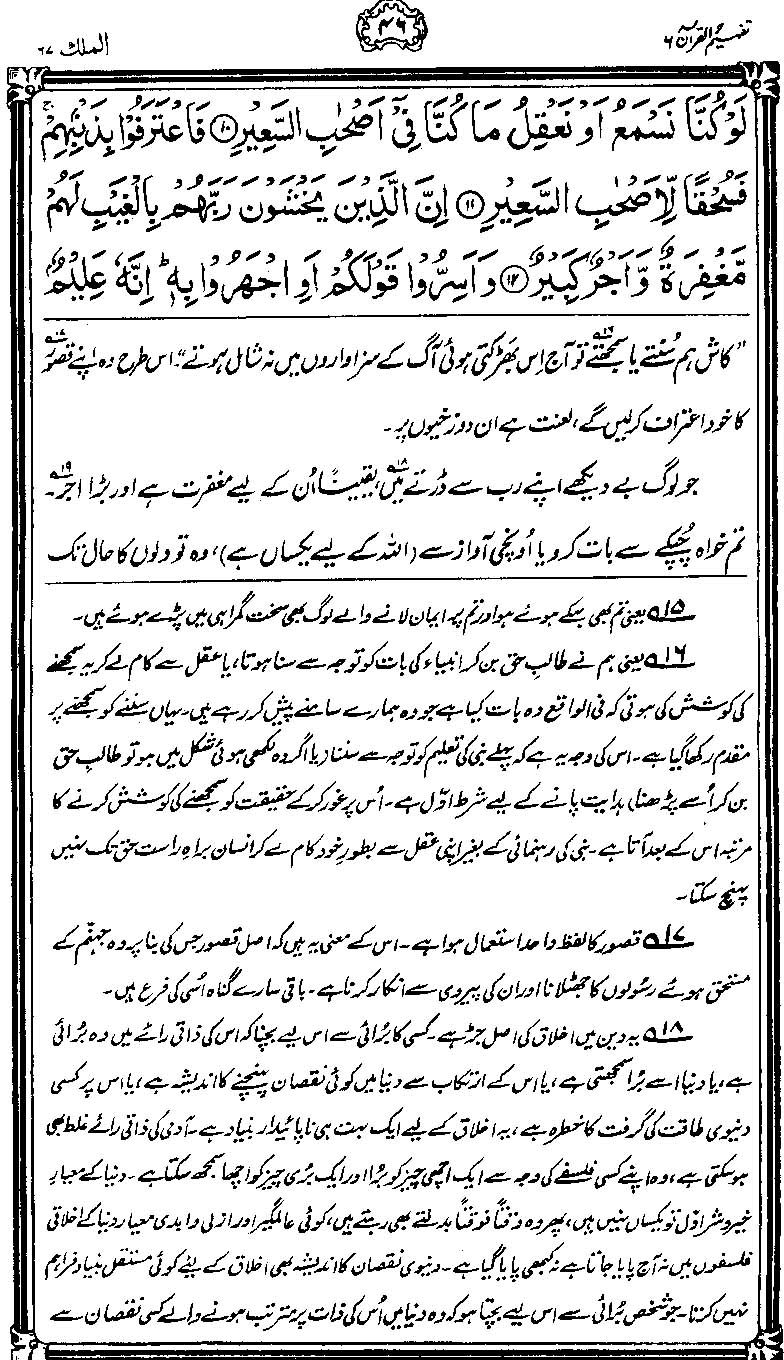 تفہیم القرآن ۶
۴۶
الملک ۶۷
لَوْ كُنَّا نَسْمَعُ اَوْ نَعْقِلُ مَا كُنَّا فِيْٓ اَصْحٰبِ السَّعِيْرِ ۝۱۰ فَاعْتَرَفُوْا بِذَنْۢبِهِمْ ۚ
فَسُحْقًا لِّاَصْحٰبِ السَّعِيْرِ ۝۱۱ اِنَّ الَّذِيْنَ يَخْشَوْنَ رَبَّهُمْ بِالْغَيْبِ لَهُمْ
مَّغْفِرَةٌ وَّاَجْرٌ كَبِيْرٌ ۝۱۲ وَاَسِرُّوْا قَوْلَكُمْ اَوِ اجْهَرُوْا بِهٖ ؕ اِنَّهٗ عَلِيْمٌۢ
”کاش ہم سُنتے یا سمجھتے۱۶ تو آج اِس بھڑکتی ہوئی آگ کے سزاواروں میں نہ شامل ہوتے“۔ اس طرح وہ اپنے قصُور۱۷
کا خود اعتراف کر لیں گے، لعنت ہے ان دوزخیوں پر۔
جو لوگ بے دیکھے اپنے رب سے ڈرتے ہیں،۱۸ یقیناً اُن کے لیے مغفرت ہے اور بڑا اجر۔۱۹
تم خواہ چُپکے سے بات کرو یا اُونچی آواز سے (اللہ کے لیے یکساں ہے)، وہ تو دلوں کا حال تک
۱۵ یعنی تم بھی بہکے ہوئے ہو اور تم پر ایمان لانے والے لوگ بھی سخت گمراہی میں پڑے ہوئے ہیں۔
۱۶ یعنی ہم نے طالبِ حق بن کر انبیاء کی بات کو توجہ سے سنا ہوتا، یا عقل سے کام لے کر یہ سمجھنے
کی کوشش کی ہوتی کہ فی الواقع وہ بات کیا ہے جو وہ ہمارے سامنے پیش کر رہے ہیں۔ یہاں سننے کو سمجھنے پر
مقدم رکھا گیا ہے۔ اس کی وجہ یہ ہے کہ پہلے نبی کی تعلیم کو توجہ سے سننا (یا اگر وہ لکھی ہوئی شکل میں ہو تو طالبِ حق
بن کر اُسے پڑھنا) ہدایت پانے کے لیے شرط اوّل ہے۔ اُس پر غور کر کے حقیقت کو سمجھنے کی کوشش کرنے کا
مرتبہ اس کے بعد آتا ہے۔ نبی کی رہنمائی کے بغیر اپنی عقل سے بطورِ خود کام لے کر انسان براہِ راست حق تک نہیں
پہنچ سکتا۔
۱۷ قصور کا لفظ واحد استعمال ہوا ہے۔ اس کے معنی یہ ہیں کہ اصل قصور جس کی بنا پر وہ جہنّم کے
مستحق ہوئے رسُولوں کا جھٹلانا اور ان کی پیروی سے انکار کرنا ہے۔ باقی سارے گناہ اُسی کی فرع ہیں۔
۱۸ یہ دین میں اخلاق کی اصل جڑ ہے۔ کسی کا بُرائی سے اس لیے بچنا کہ اس کی ذاتی رائے میں وہ بُرائی
ہے، یا دنیا اسے بُرا سمجھتی ہے، یا اس کے ارتکاب سے دنیا میں کوئی نقصان پہنچنے کا اندیشہ ہے، یا اس پر کسی
دنیوی طاقت کی گرفت کا خطرہ ہے، یہ اخلاق کے لیے ایک بہت ہی ناپائیدار بنیاد ہے۔ آدمی کی ذاتی رائے غلط بھی
ہو سکتی ہے، وہ اپنے کسی فلسفے کی وجہ سے ایک اچھی چیز کو بُرا اور ایک بُری چیز کو اچھا سمجھ سکتا ہے۔ دنیا کے معیارِ
خیر و شر اوّل تو یکساں نہیں ہیں، پھر وہ وقتاً فوقتاً بدلتے بھی رہتے ہیں، کوئی عالمگیر اور ازلی و ابدی معیار دنیا کے اخلاقی
فلسفوں میں نہ آج پایا جاتا ہے نہ کبھی پایا گیا ہے۔ دنیوی نقصان کا اندیشہ بھی اخلاق کے لئے کوئی مستقل بنیاد فراہم
نہیں کرتا۔ جو شخص بُرائی سے اس لیے بچتا ہو کہ وہ دنیا میں اُس کی ذات پر مترتب ہونے والے کسی نقصان سے